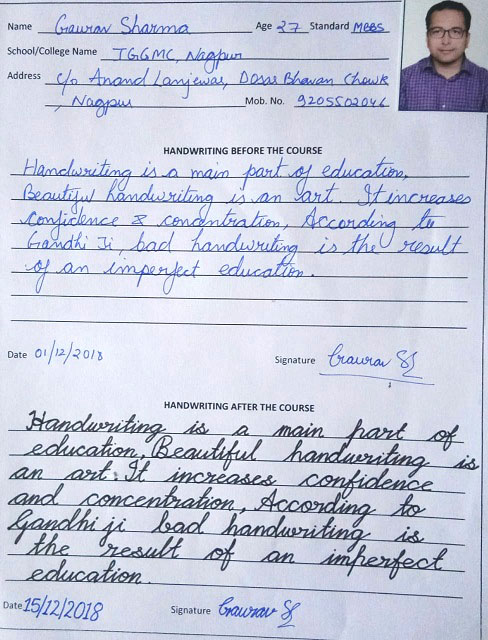 Name Gaurav Sharma Age 27 Standard MBBS
School/College Name IGGMC, Nagpur
Address c/o Anand Lanjewar, Dosar Bhavan Chowk
, Nagpur Mob. No. 9205502046
HANDWRITING BEFORE THE COURSE
Handwriting is a main part of education,
Beautiful handwriting is an art. It increases
confidence & concentration, According to
Gandhi Ji, bad handwriting is the result
of an imperfect education.
Date 01/12/2018 Signature Gaurav
HANDWRITING AFTER THE COURSE
Handwriting is a main part of
education, Beautiful handwriting is
an art. It increases confidence
and concentration, According to
Gandhi ji bad handwriting is
the result of an imperfect
education.
Date 15/12/2018 Signature Gaurav